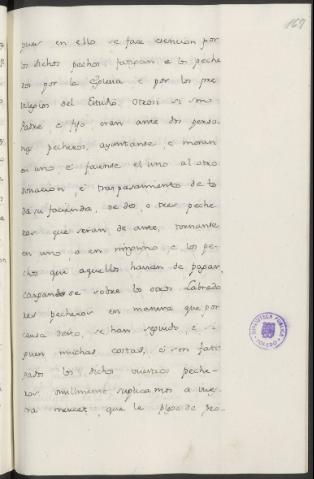 169
pues en ello se face esencion por
los dichos pechos fatigan a los peche
ros por la Iglesia e por los pre
vilegios del Estudio. Otrosi si uno
Padre e fijo eran ante dos perso
nas pecheros, ayuntanse, e moran
en uno, e facense el uno al otro
donacion, e traspasamiento de to
da su facienda, de dos, o tres peche
ros que seran de ante, tornanse
en uno, o en ninguno, e los pe
chos que aquellos havian de pagar,
cargandose sobre los otros Labrado
res pecheros en manera que por
causa desto, se han seguido, e si
guen muchas costas, e son fati
gados los dichos vuestros peche
ros omillmente suplicamos a vues
tra merced, que le plega de pro-
BIBLIOTECA PUBLICA
TOLEDO